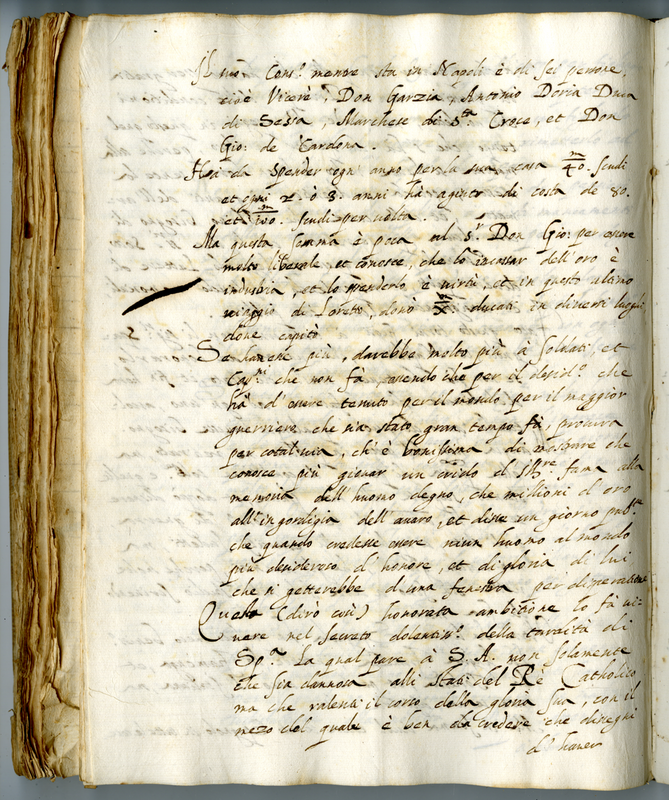 Il suo Cons.o mentre sta in Napoli è di sei persone,
cioè Vicerè, Don Garzia, Antonio Doria Duca
di Sessa, Marchese di S.ta Croce, et Don
Gio: de Cardona.
Ha da spender ogni anno per la sua casa m/40. scudi
et ogni 2. ò 3. anni ha agiuto di costa de 80.
et m/100. scudi per uolta.
Ma questa somma è poca al S.r Don Gio: per essere
molto liberale, et conosce, che lo incassar dell'oro è
industria, et lo spenderlo è uirtù, et in questo ultimo
uiaggio di Loreto, donò m/X ducati in diuersi luoghi
doue capitò
Se hauesse più, darebbe molto più à soldati, et
Cap.ni che non fà hauendo che per il desid.o che
hà d'essere tenuto per il mondo per il maggior
guerriero che sia stato gran tempo fà, procura
per cotal uia, ch'è bonissima di mostrare che
conosce più giouar un grido d'Ill.tre fama alla
memoria dell'huomo degno, che millioni d'oro
all'ingordigia dell'auaro, et disse un giorno pub.te
che quando credesse essere niun huomo al mondo
più desideroso d'honore, et di gloria di lui
che si getterebbe d'una fenestra per disperatione
Questa (dirò così) honorata ambitione lo fà ui-
uere nel secreto dolentiss.o della tardità di
Sp.a La qual pare à S. A. non solamente
che sia dannosa alli stati del Rè Catholico
ma che ralenti il corso della gloria sua, con il
mezo del quale è ben da credere che disegni
d'hauer
2